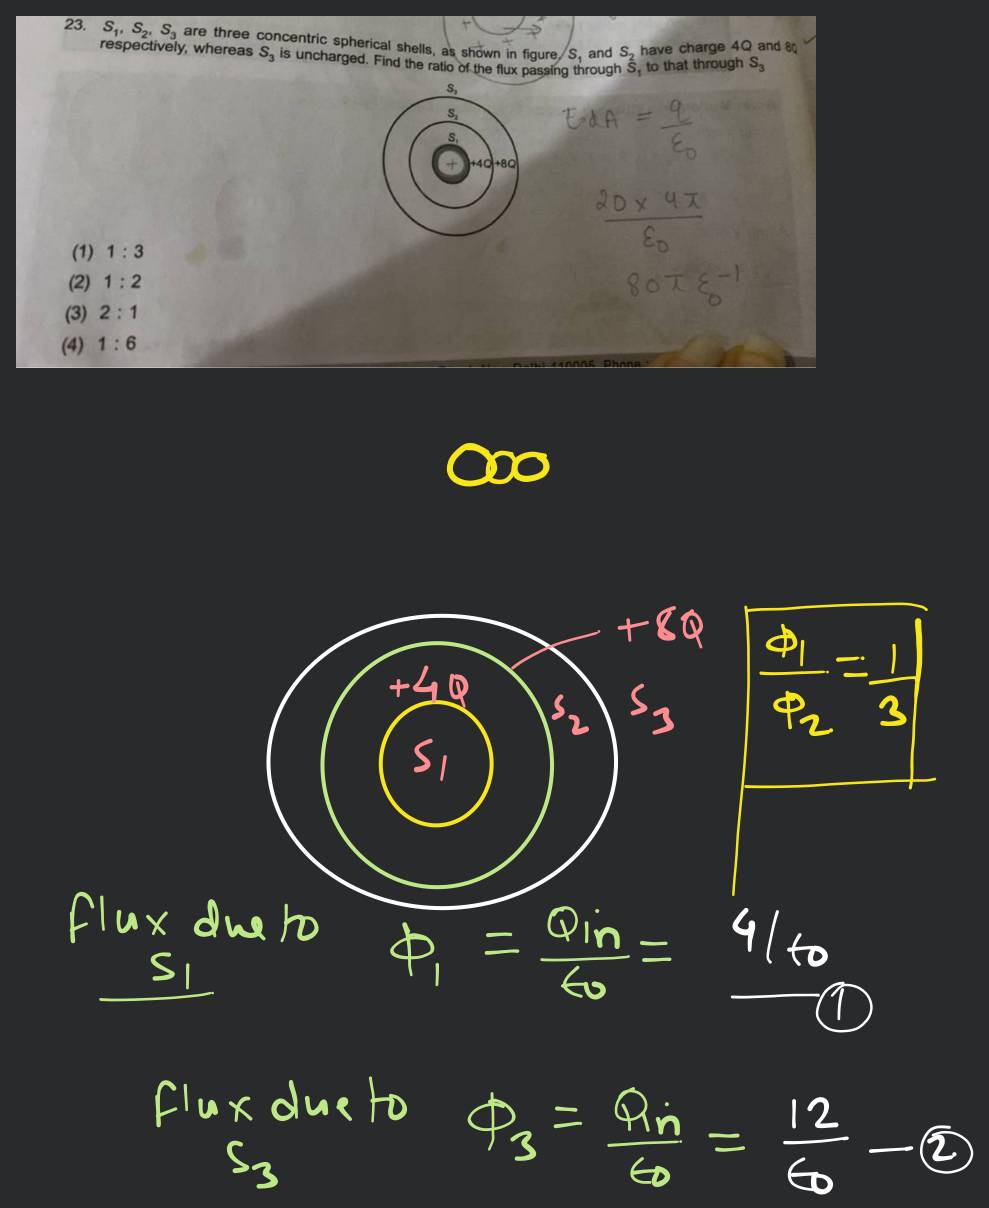 23. S₁, S₂, S₃ are three concentric spherical shells, as shown in figure, S₁ and S₂ have charge 4Q and 8Q
respectively, whereas S₃ is uncharged. Find the ratio of the flux passing through S₁ to that through S₃
S₃
S₂
S₁
+ +4Q +8Q
E·dA = q/ε₀
20 × 4π/ε₀
80π ε₀⁻¹
(1) 1 : 3
(2) 1 : 2
(3) 2 : 1
(4) 1 : 6
Delhi-110005. Phone :
+8Q
+4Q
S₁
S₂
S₃
Φ₁/Φ₂ = 1/3
flux due to
S₁
Φ₁ = Qin/ϵ₀ = 4/ϵ₀
①
flux due to
S₃
Φ₃ = Qin/ϵ₀ = 12/ϵ₀ — ②